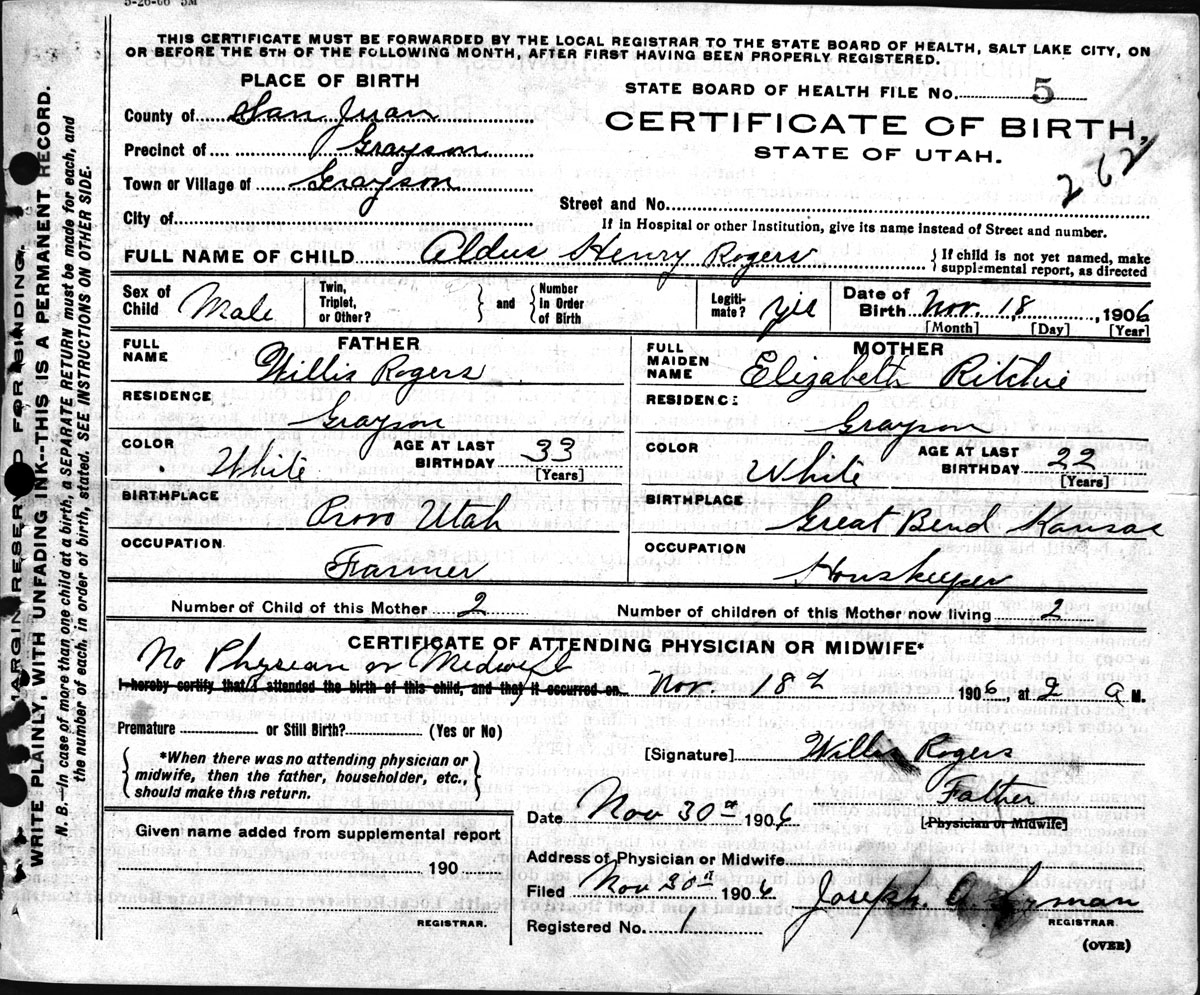 5-26-06 5M
THIS CERTIFICATE MUST BE FORWARDED BY THE LOCAL REGISTRAR TO THE STATE BOARD OF HEALTH, SALT LAKE CITY, ON
OR BEFORE THE 5TH OF THE FOLLOWING MONTH, AFTER FIRST HAVING BEEN PROPERLY REGISTERED.
PLACE OF BIRTH
STATE BOARD OF HEALTH FILE No. 5
County of San Juan
CERTIFICATE OF BIRTH,
Precinct of Grayson
STATE OF UTAH.
262
Town or Village of Grayson
Street and No.
City of
If in Hospital or other Institution, give its name instead of Street and number.
FULL NAME OF CHILD Aldus Henry Rogers
{ If child is not yet named, make
supplemental report, as directed
Sex of Child Male
Twin, Triplet, or Other?
} and {
Number in Order of Birth
Legiti-mate? yes
Date of Birth Nov. 18, 1906
[Month] [Day] [Year]
FATHER
FULL NAME Willis Rogers
RESIDENCE Grayson
COLOR White
AGE AT LAST BIRTHDAY 33
[Years]
BIRTHPLACE Provo Utah
OCCUPATION Farmer
MOTHER
FULL MAIDEN NAME Elizabeth Ritchie
RESIDENCE Grayson
COLOR White
AGE AT LAST BIRTHDAY 22
[Years]
BIRTHPLACE Great Bend Kansas
OCCUPATION Houskeeper
Number of Child of this Mother 2
Number of children of this Mother now living 2
CERTIFICATE OF ATTENDING PHYSICIAN OR MIDWIFE*
No Physian or Midwife
I hereby certify that I attended the birth of this child, and that it occurred on Nov. 18 1906, at 2 a M.
Premature or Still Birth? (Yes or No)
{ *When there was no attending physician or
midwife, then the father, householder, etc.,
should make this return. }
[Signature] Willis Rogers
Father
[Physician or Midwife]
Date Nov 30 1906
Given name added from supplemental report
190
REGISTRAR.
Address of Physician or Midwife
Filed Nov 30 1906
Joseph
REGISTRAR.
Registered No. 1
(OVER)
MARGIN RESERVED FOR BINDING.
WRITE PLAINLY, WITH UNFADING INK--THIS IS A PERMANENT RECORD.
N. B.—In case of more than one child at a birth, a SEPARATE RETURN must be made for each, and
the number of each, in order of birth, stated. SEE INSTRUCTIONS ON OTHER SIDE.